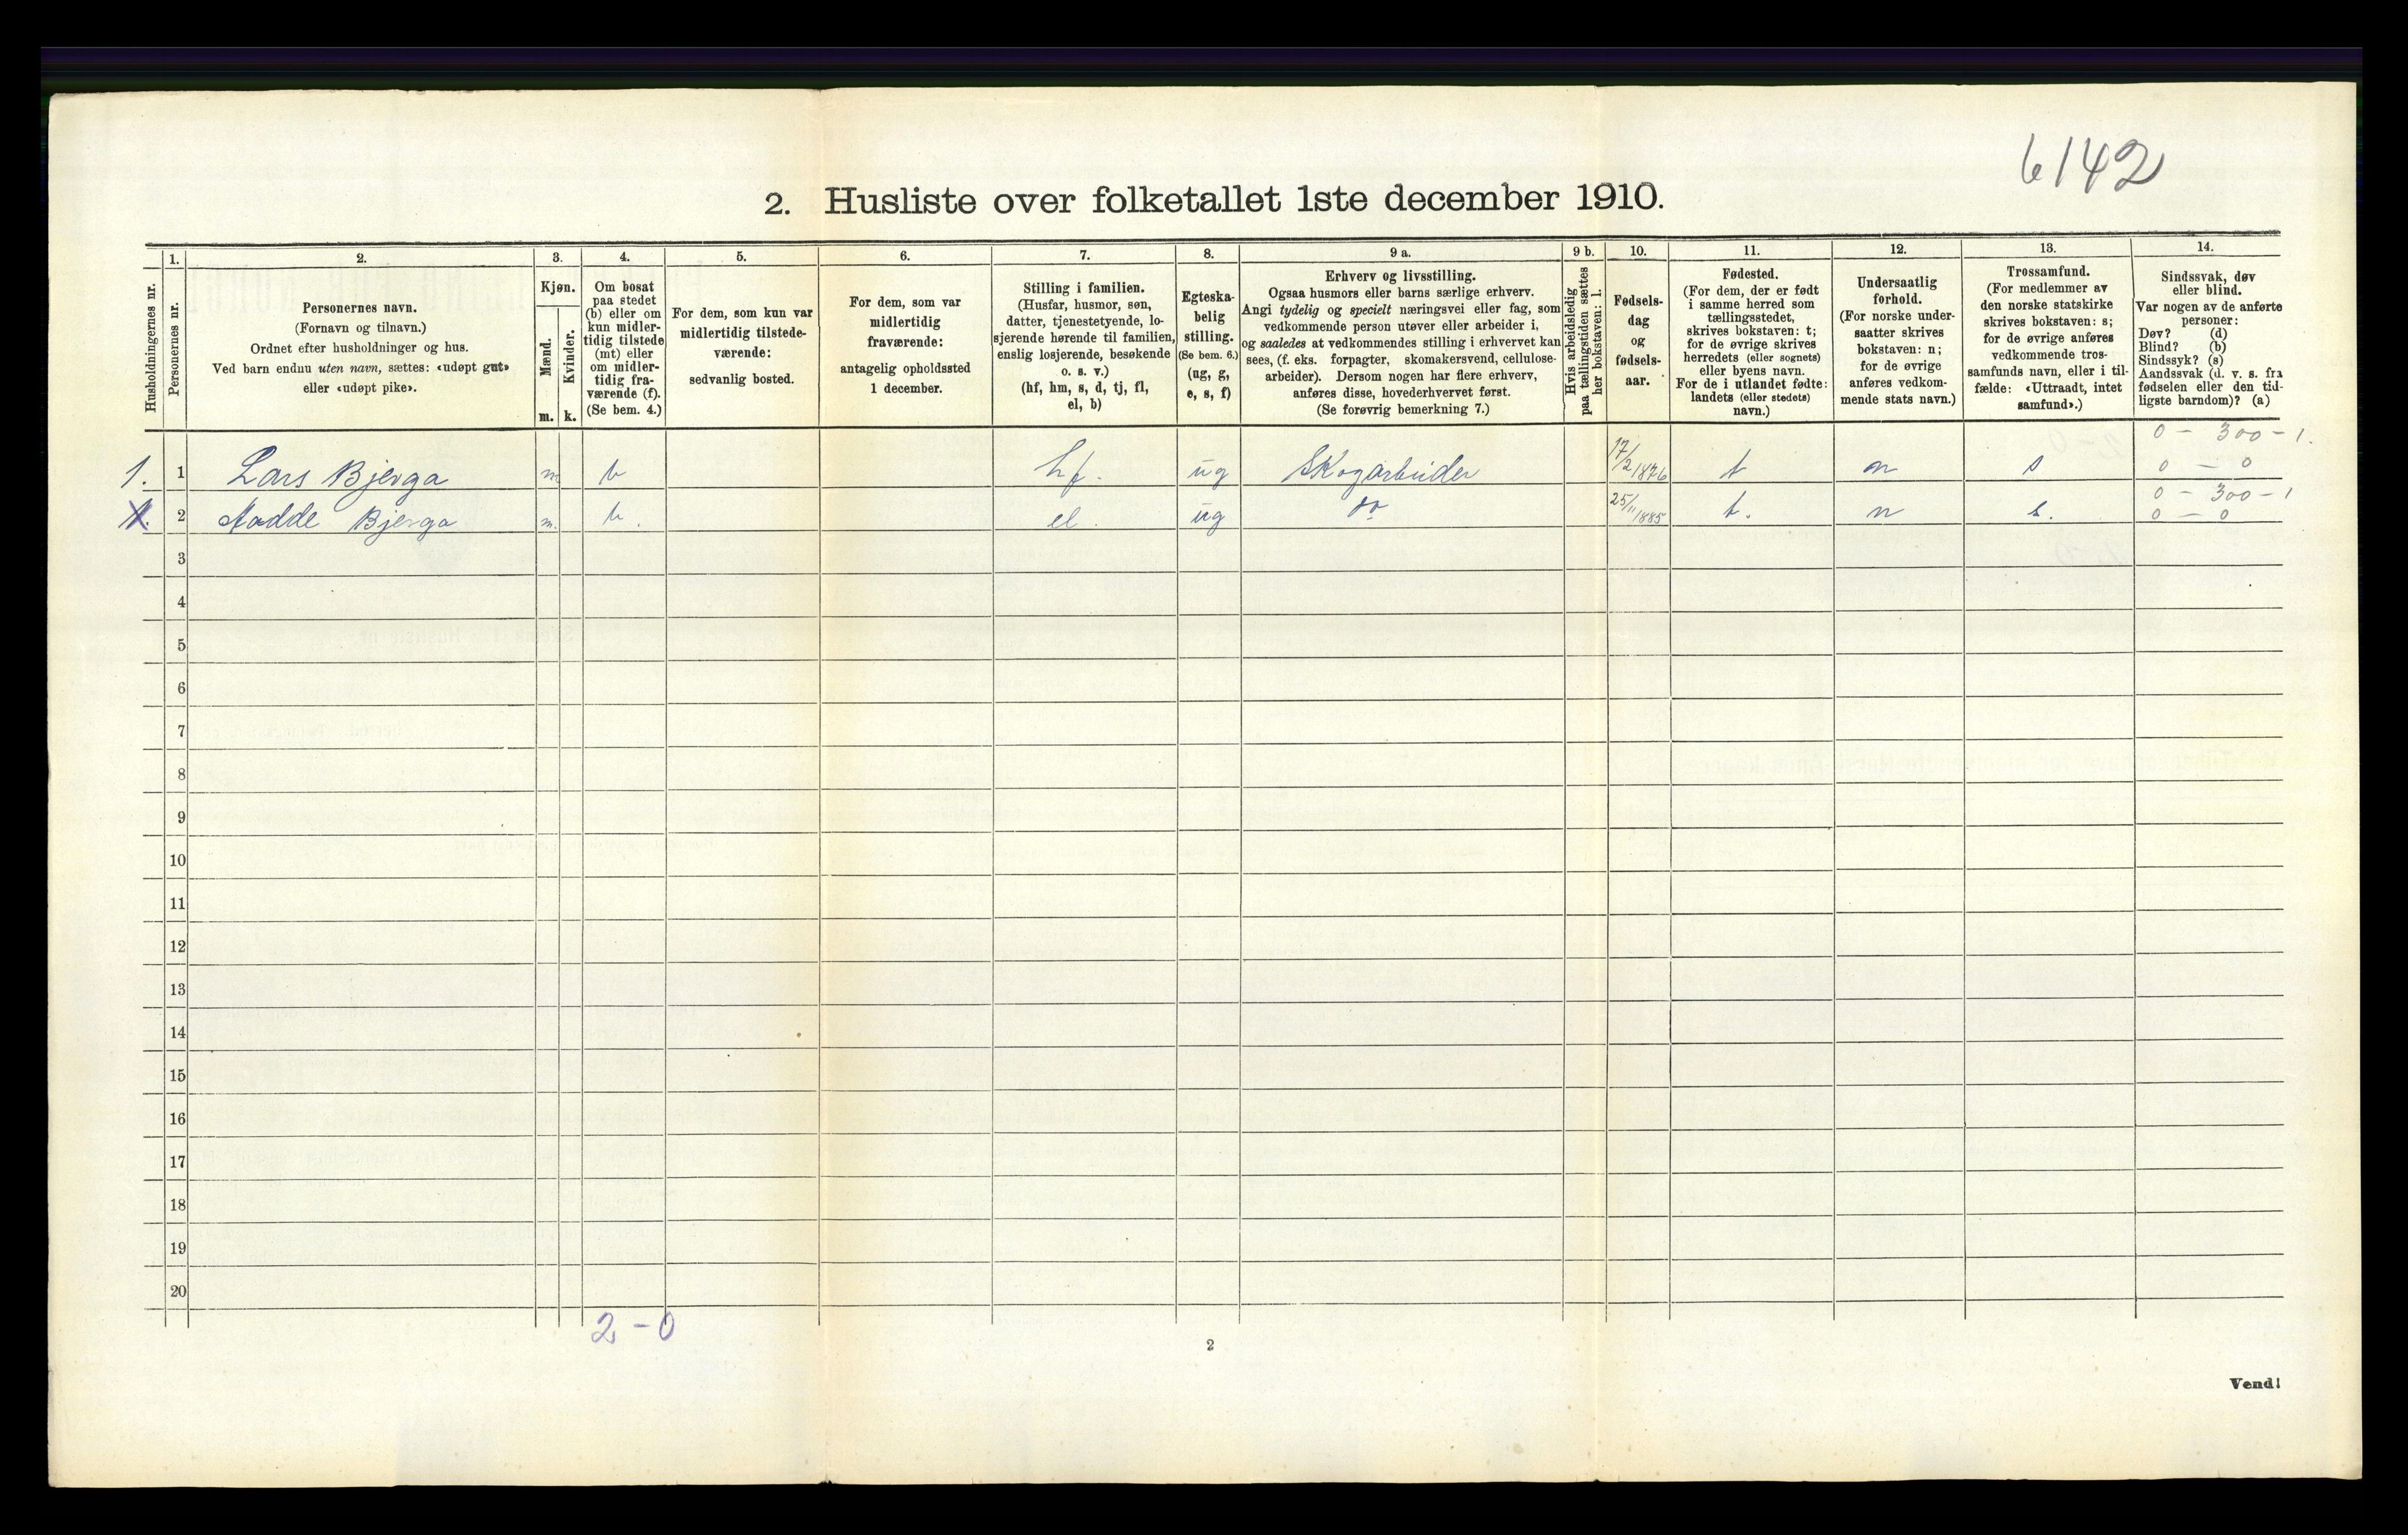 6142
2. Husliste over folketallet 1ste december 1910.
1. 2. 3. 4. 5. 6. 7. 8. 9 a. 9 b. 10. 11. 12. 13. 14.
Husholdningernes nr.
Personernes nr.
Personernes navn.
(Fornavn og tilnavn.)
Ordnet efter husholdninger og hus.
Ved barn endnu uten navn, sættes: «udøpt gut»
eller «udøpt pike».
Kjøn.
Mænd.
m.
Kvinder.
k.
Om bosat
paa stedet
(b) eller om
kun midler-
tidig tilstede
(mt) eller
om midler-
tidig fra-
værende (f).
(Se bem. 4.)
For dem, som kun var
midlertidig tilstede-
værende:
sedvanlig bosted.
For dem, som var
midlertidig
fraværende:
antagelig opholdssted
1 december.
Stilling i familien.
(Husfar, husmor, søn,
datter, tjenestetyende, lo-
sjerende hørende til familien,
enslig losjerende, besøkende
o. s. v.)
(hf, hm, s, d, tj, fl,
el, b)
Egteska-
belig
stilling.
(Se bem. 6.)
(ug, g,
e, s, f)
Erhverv og livsstilling.
Ogsaa husmors eller barns særlige erhverv.
Angi tydelig og specielt næringsvei eller fag, som
vedkommende person utøver eller arbeider i,
og saaledes at vedkommendes stilling i erhvervet kan
sees, (f. eks. forpagter, skomakersvend, cellulose-
arbeider). Dersom nogen har flere erhverv,
anføres disse, hovederhvervet først.
(Se forøvrig bemerkning 7.)
Hvis arbeidsledig
paa tællingstiden sættes
her bokstaven: l.
Fødsels-
dag
og
fødsels-
aar.
Fødested.
(For dem, der er født
i samme herred som
tællingsstedet,
skrives bokstaven: t;
for de øvrige skrives
herredets (eller sognets)
eller byens navn.
For de i utlandet fødte:
landets (eller stedets)
navn.)
Undersaatlig
forhold.
(For norske under-
saatter skrives
bokstaven: n;
for de øvrige
anføres vedkom-
mende stats navn.)
Trossamfund.
(For medlemmer av
den norske statskirke
skrives bokstaven: s;
for de øvrige anføres
vedkommende tros-
samfunds navn, eller i til-
fælde: «Uttraadt, intet
samfund».)
Sindssvak, døv
eller blind.
Var nogen av de anførte
personer:
Døv? (d)
Blind? (b)
Sindssyk? (s)
Aandssvak (d. v. s. fra
fødselen eller den tid-
ligste barndom)? (a)
0 - 300 - 1.
1. 1 Lars Bjerga m b hf. ug Skogarbeider 17/2 1876 t n s 0 - 0
0 - 300 - 1
1. 2 Aadde Bjerga m. b. el. ug do 25/11 1885 t. n s. 0 - 0
3
4
5
6
7
8
9
10
11
12
13
14
15
16
17
18
19
20
2 - 0
2
Vend!